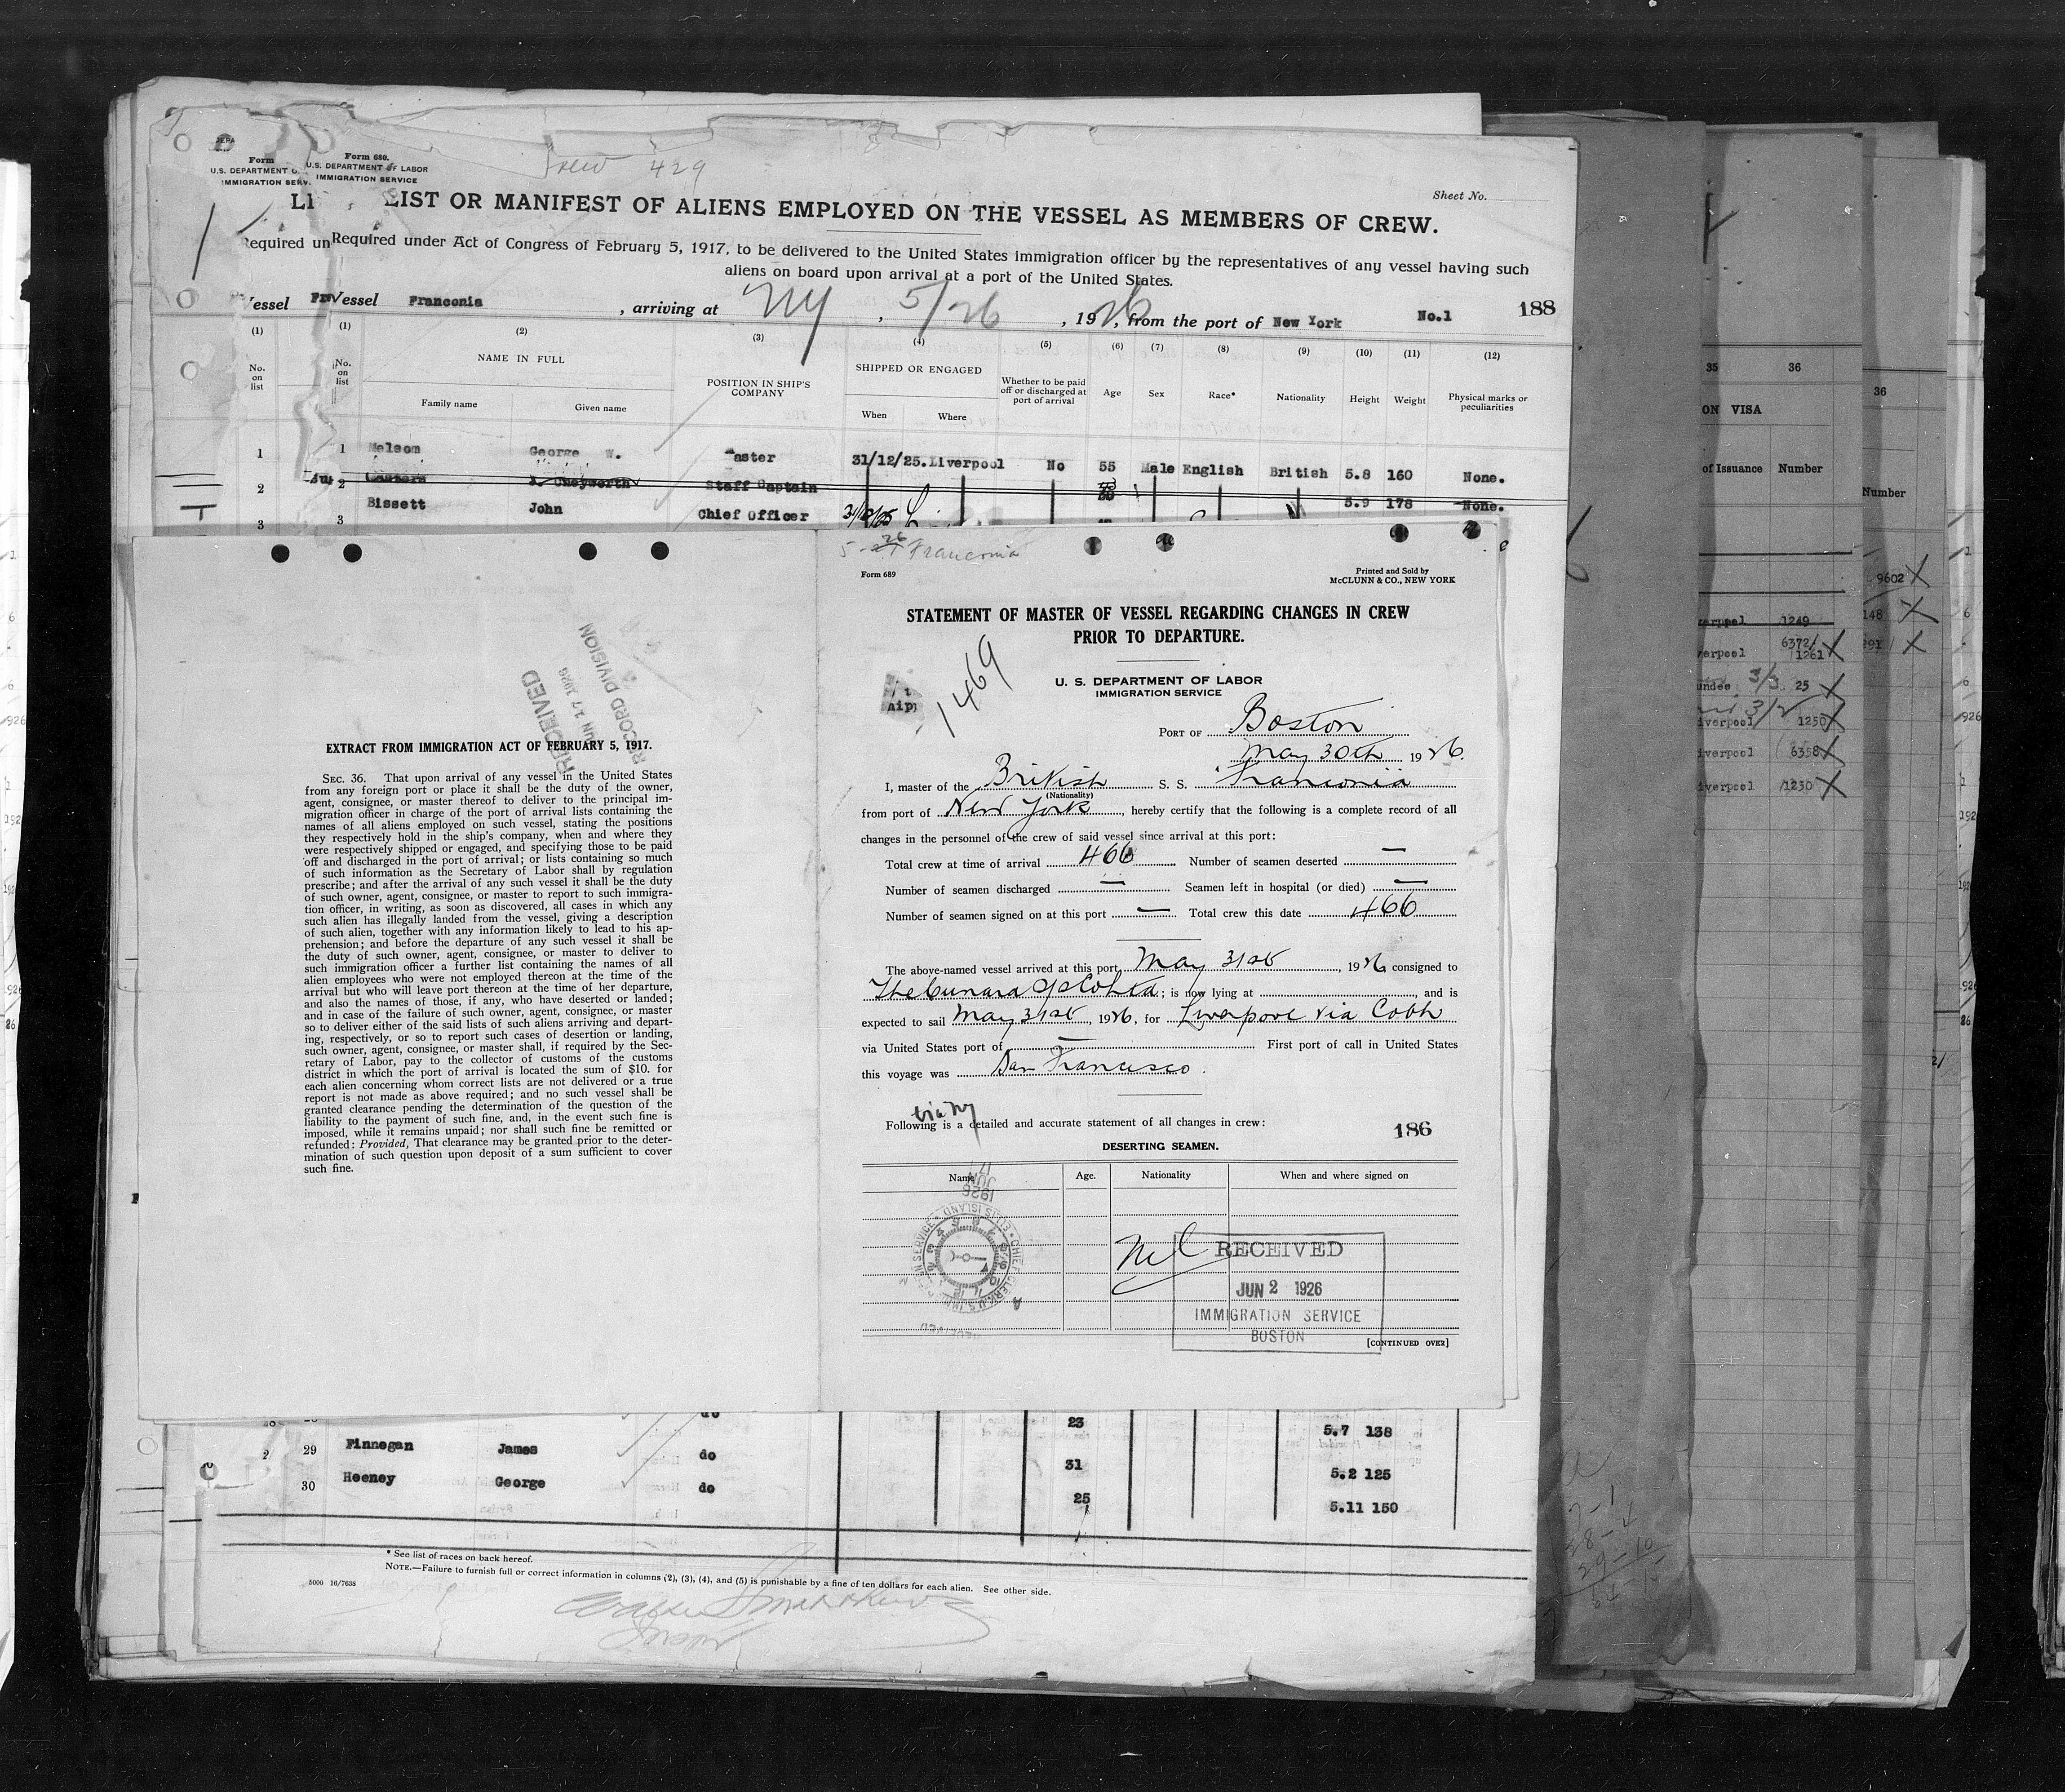 Crew 429
Form 680.
U.S. DEPARTMENT OF LABOR
IMMIGRATION SERVICE
Form
U.S. DEPARTMENT O
IMMIGRATION SERV.
Sheet No.
LIST OR MANIFEST OF ALIENS EMPLOYED ON THE VESSEL AS MEMBERS OF CREW.
Required under Act of Congress of February 5, 1917, to be delivered to the United States immigration officer by the representatives of any vessel having such
aliens on board upon arrival at a port of the United States.
Vessel Franconia, arriving at NY, 5/26, 1926, from the port of New York No.1 188
(1) (1) (2) (3) (4) (5) (6) (7) (8) (9) (10) (11) (12)
No. on list No. on list NAME IN FULL Family name Given name POSITION IN SHIP'S COMPANY SHIPPED OR ENGAGED When Where Whether to be paid off or discharged at port of arrival Age Sex Race* Nationality Height Weight Physical marks or peculiarities
1 1 Melsom George W. Master 31/12/25. Liverpool No 55 Male English British 5.8 160 None.
2 2 Staff Captain 5.9 178 None.
3 3 Bissett John Chief Officer
5-26 Franconia
Form 689
Printed and Sold by
McCLUNN & CO., NEW YORK
STATEMENT OF MASTER OF VESSEL REGARDING CHANGES IN CREW
PRIOR TO DEPARTURE.
1469
U. S. DEPARTMENT OF LABOR
IMMIGRATION SERVICE
PORT OF Boston
May 30th 1926.
I, master of the British S. S. Franconia
(Nationality)
from port of New York, hereby certify that the following is a complete record of all
changes in the personnel of the crew of said vessel since arrival at this port:
Total crew at time of arrival 466 Number of seamen deserted —
Number of seamen discharged — Seamen left in hospital (or died) —
Number of seamen signed on at this port — Total crew this date 466
The above-named vessel arrived at this port May 31st, 1926 consigned to
The Cunard SS Co Ltd; is now lying at , and is
expected to sail May 31st, 1926, for Liverpool via Cobh
via United States port of — First port of call in United States
this voyage was San Francisco.
via NY
Following is a detailed and accurate statement of all changes in crew:
186
DESERTING SEAMEN.
Name Age. Nationality When and where signed on
Nil
RECEIVED
JUN 2 1926
IMMIGRATION SERVICE
BOSTON
[CONTINUED OVER]
RECEIVED
JUN 17 1926
RECORD DIVISION
EXTRACT FROM IMMIGRATION ACT OF FEBRUARY 5, 1917.
SEC. 36. That upon arrival of any vessel in the United States
from any foreign port or place it shall be the duty of the owner,
agent, consignee, or master thereof to deliver to the principal im-
migration officer in charge of the port of arrival lists containing the
names of all aliens employed on such vessel, stating the positions
they respectively hold in the ship's company, when and where they
were respectively shipped or engaged, and specifying those to be paid
off and discharged in the port of arrival; or lists containing so much
of such information as the Secretary of Labor shall by regulation
prescribe; and after the arrival of any such vessel it shall be the duty
of such owner, agent, consignee, or master to report to such immigra-
tion officer, in writing, as soon as discovered, all cases in which any
such alien has illegally landed from the vessel, giving a description
of such alien, together with any information likely to lead to his ap-
prehension; and before the departure of any such vessel it shall be
the duty of such owner, agent, consignee, or master to deliver to
such immigration officer a further list containing the names of all
alien employees who were not employed thereon at the time of the
arrival but who will leave port thereon at the time of her departure,
and also the names of those, if any, who have deserted or landed;
and in case of the failure of such owner, agent, consignee, or master
so to deliver either of the said lists of such aliens arriving and depart-
ing, respectively, or so to report such cases of desertion or landing,
such owner, agent, consignee, or master shall, if required by the Sec-
retary of Labor, pay to the collector of customs of the customs
district in which the port of arrival is located the sum of $10. for
each alien concerning whom correct lists are not delivered or a true
report is not made as above required; and no such vessel shall be
granted clearance pending the determination of the question of the
liability to the payment of such fine, and, in the event such fine is
imposed, while it remains unpaid; nor shall such fine be remitted or
refunded: Provided, That clearance may be granted prior to the deter-
mination of such question upon deposit of a sum sufficient to cover
such fine.
do 23 5.7 138
29 Finnegan James do 31 5.2 125
30 Heeney George do 25 5.11 150
* See list of races on back hereof.
NOTE.—Failure to furnish full or correct information in columns (2), (3), (4), and (5) is punishable by a fine of ten dollars for each alien. See other side.
5000 16/7638
35 36
ON VISA
of Issuance Number
1249
6372
1261
25
1250
6358
1230
36
Number
9602
148